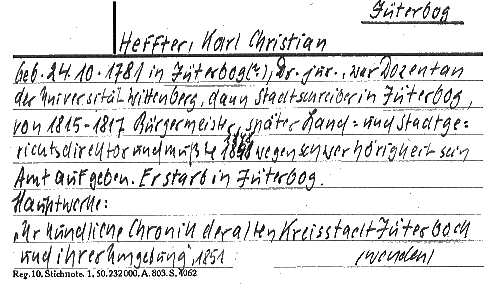 Jüterbog
Heffter, Karl Christian
geb. 24.10.1781 in Jüterbog(?), Dr. jur., war Dozent an
der Universität Wittenberg, dann Stadtschreiber in Jüterbog,
von 1815-1817 Bürgermeister, später Land- und Stadtge-
richtsdirektor und mußte wegen Schwerhörigkeit sein
Amt aufgeben. Er starb in Jüterbog.
Hauptwerke:
"Urkundliche Chronik der alten Kreisstadt Jüterbock
und ihrer Umgebung", 1851
(wenden)
Reg. 10. Stichnote. 1. 50. 232000. A. 803. S. 4062